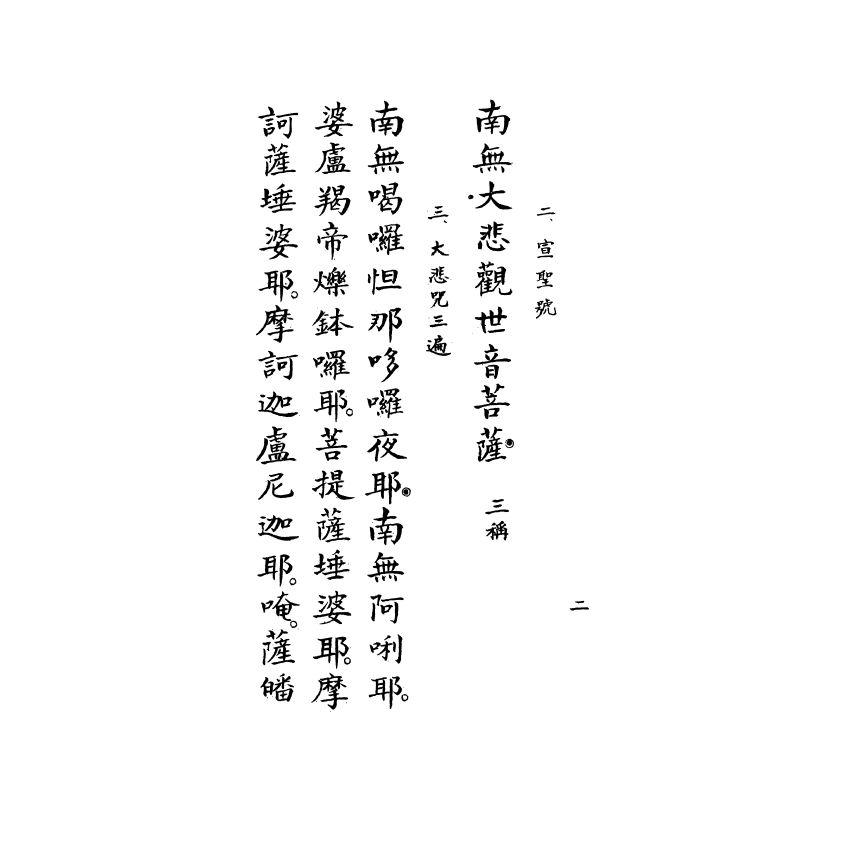 二
二、宣聖號
南無大悲觀世音菩薩 三稱
三、大悲咒三遍
南無喝囉怛那哆囉夜耶。南無阿唎耶。
婆盧羯帝爍鉢囉耶。菩提薩埵婆耶。摩
訶薩埵婆耶。摩訶迦盧尼迦耶。唵。薩皤